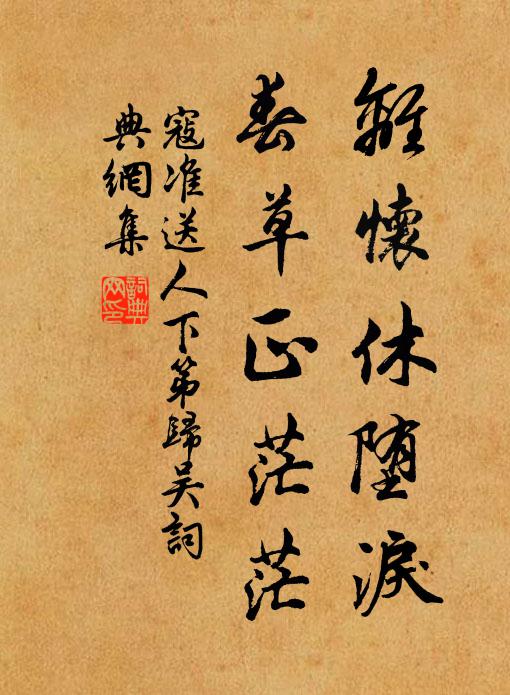 離懷休堕淚
春草正茫茫
寇准送人下第歸吳詞
典網集
詞典
网印